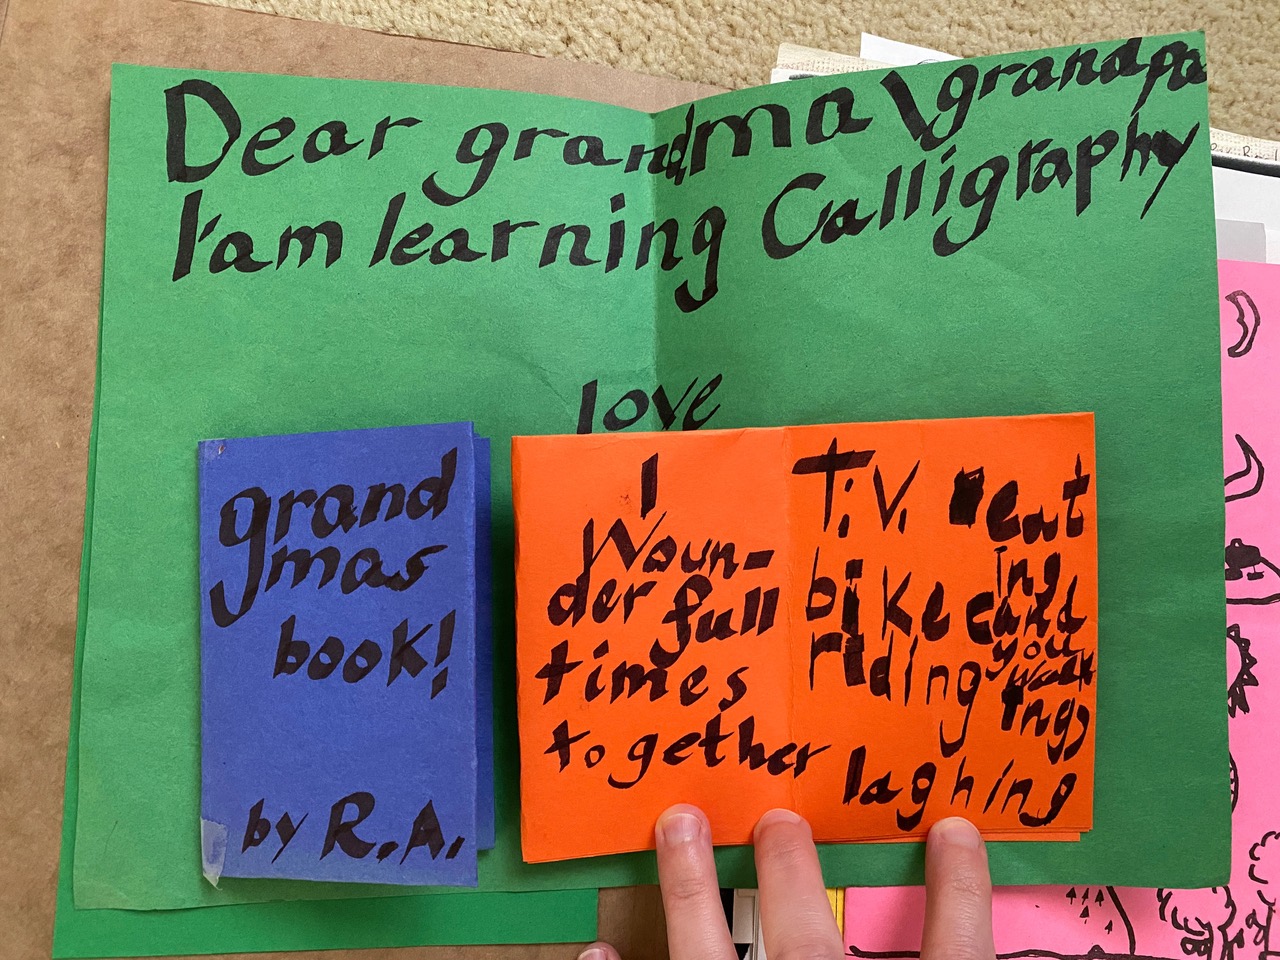 Dear grandma\grandpa
I'am learning Calligraphy
love
grand
mas
book!
by R.A.
I
Woun-
der full
times
together
T.V. eat
ing
bike cand
riding you
walk
ings
laghing